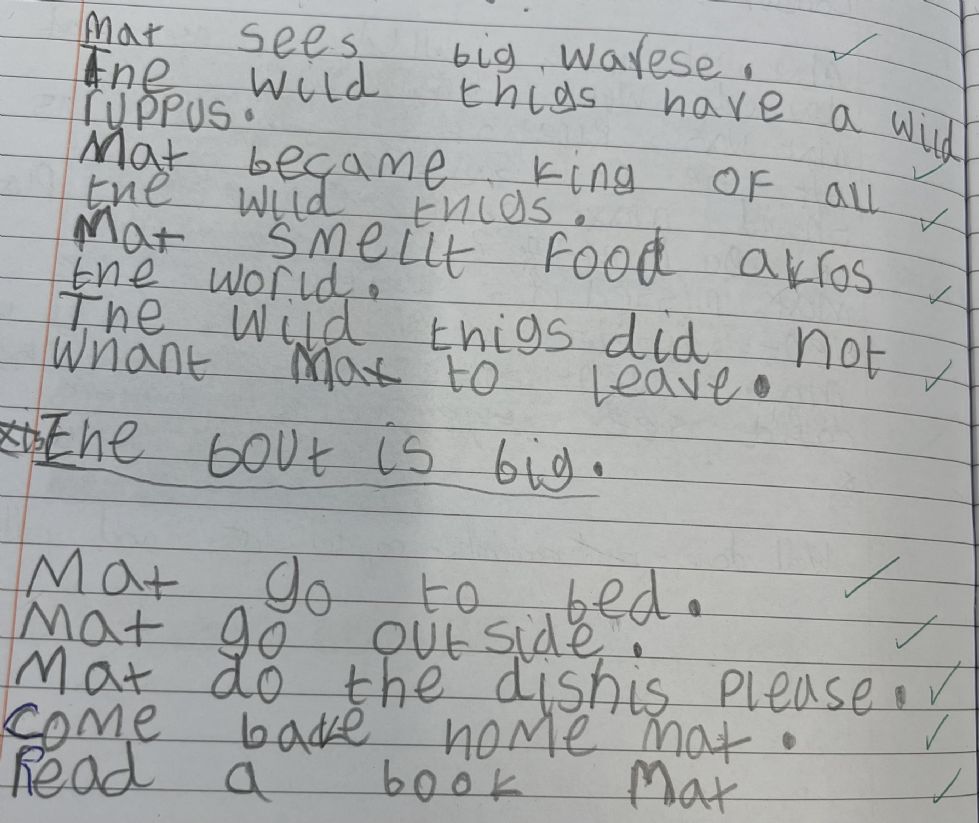 Mat sees big wavese.
The wild thigs have a wild
ruppus.
Mat became king OF all
the wild thigs.
Mat smellt Food akros
the world.
The wild thigs did not
whant Mat to leave.
The bout is big.
Mat go to bed.
Mat go outside.
Mat do the dishis please.
Come bake home mat.
Read a book Mat